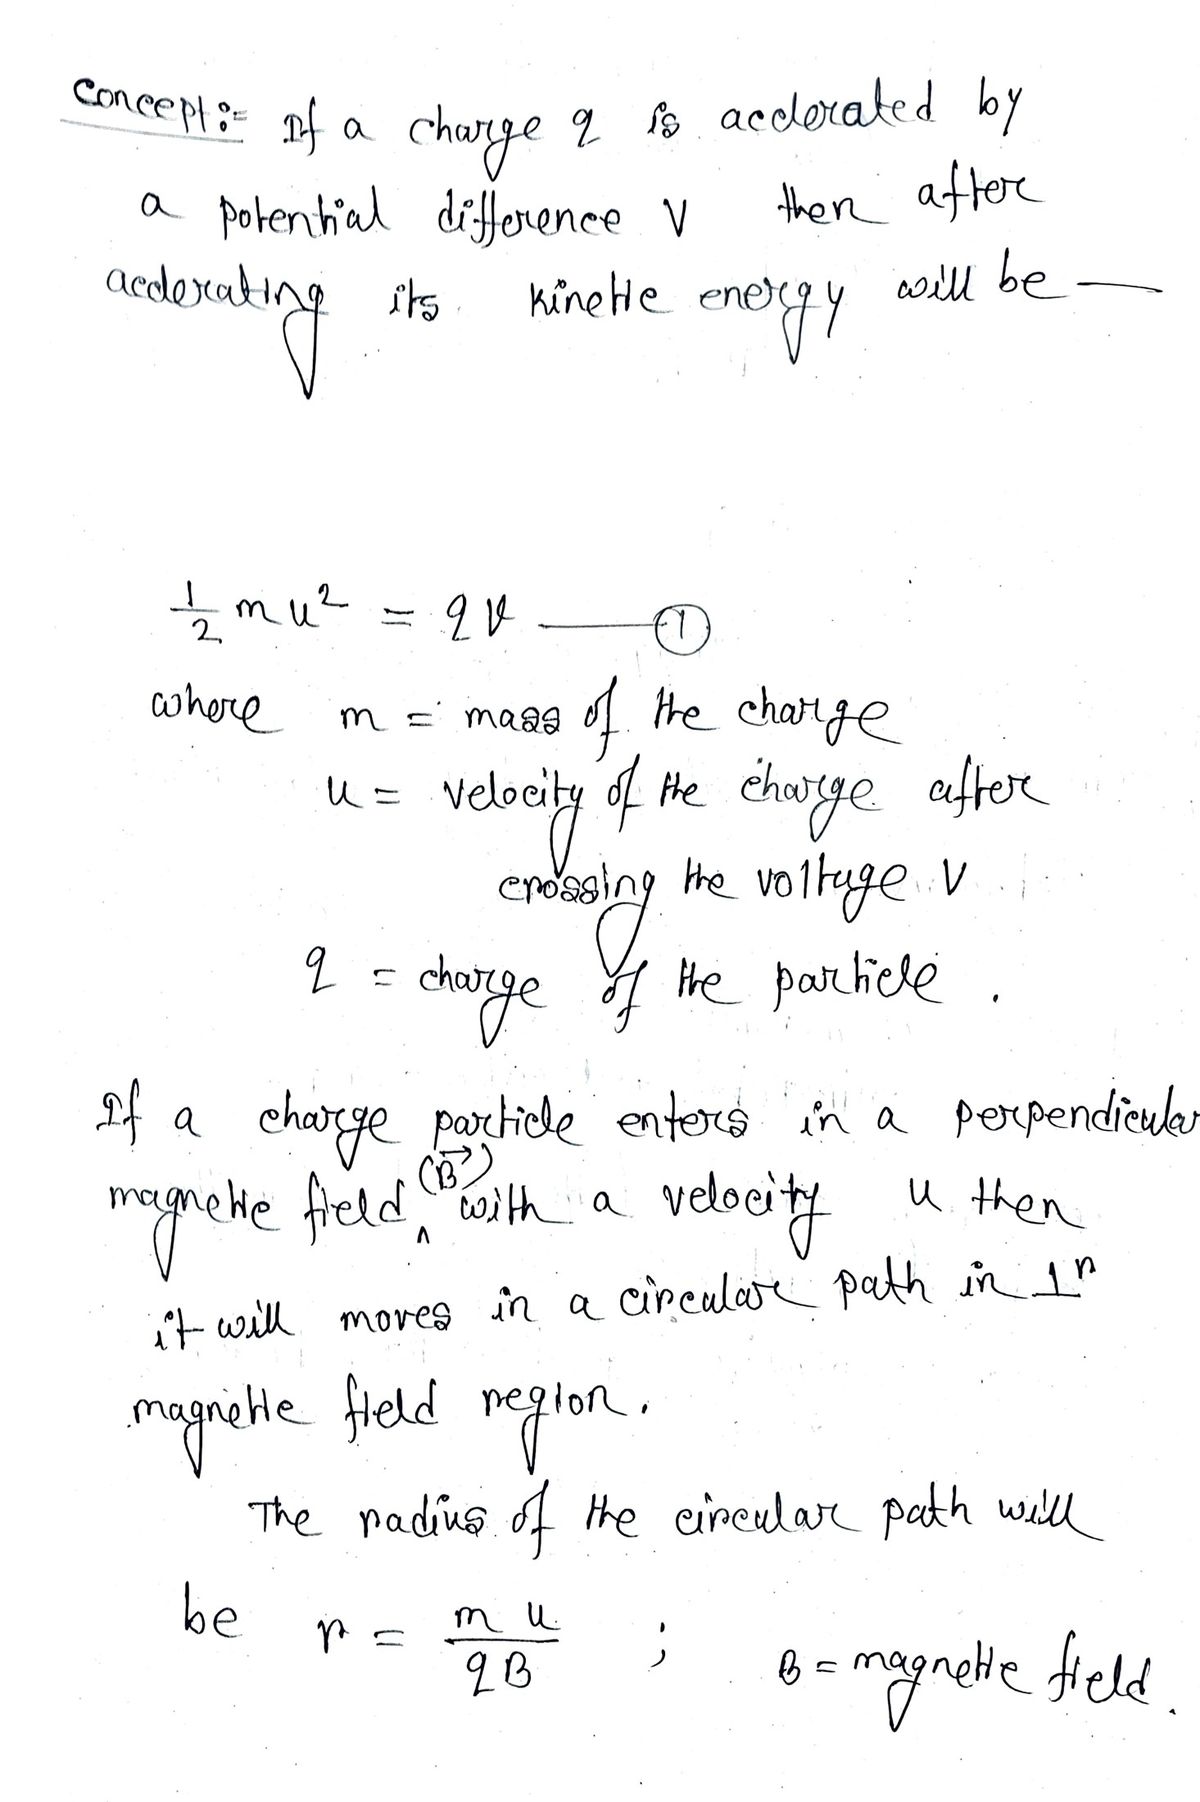 Concept:- If a charge q is acclerated by
a potential difference V then after
acclerating its kinetic energy will be —
1/2 m u² = q V —— ①
where m = mass of the charge
u = velocity of the charge after
crossing the voltage V
q = charge of the particle.
If a charge particle enters in a perpendicular
magnetic field (B⃗) with a velocity u then
it will moves in a circular path in ⊥r
magnetic field region.
The radius of the circular path will
be r = m u / q B ; B = magnetic field.